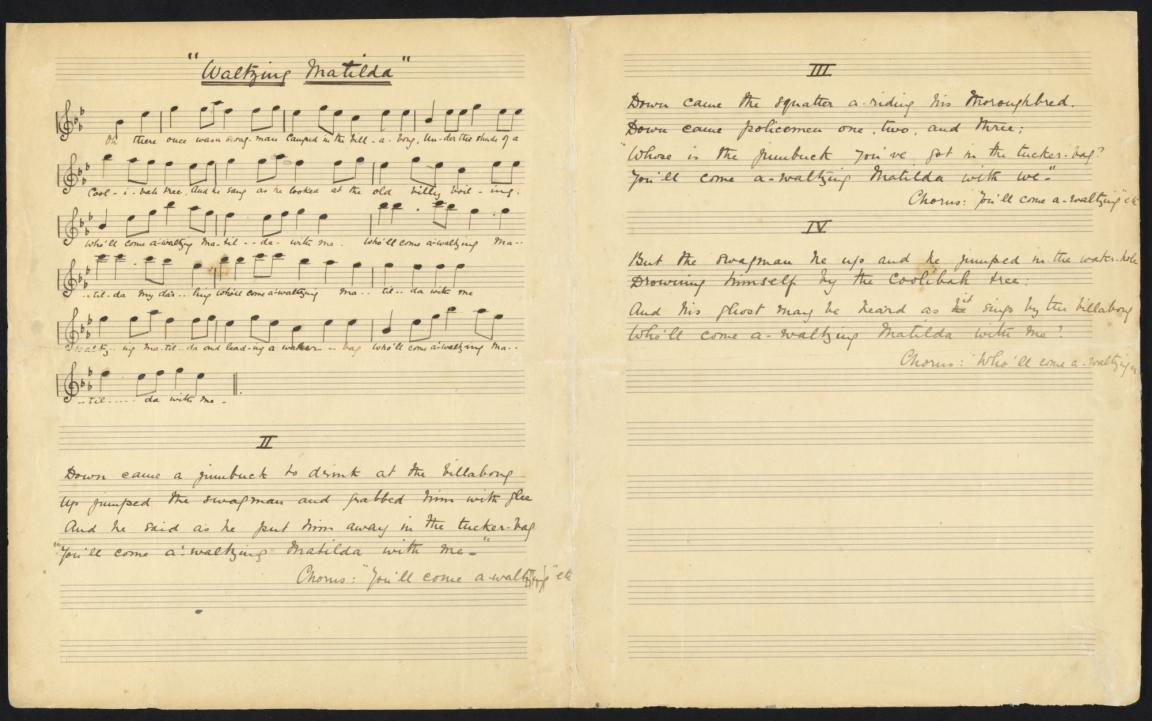 "Waltzing Matilda"
Oh there once was a swag-man camped in the bill-a-bong, Un-der the shade of a
Cool-i-bah tree, And he sang as he looked at the old billy boil-ing.
Who'll come a-waltzing Ma-til--da- with me. Who'll come a-waltzing Ma--
--til-da my dar--ling who'll come a-waltzing Ma-- til--da with me
Waltz--ing Ma-til-da and lead-ing a water--bag Who'll come a-waltzing Ma--
--til---- da with me-
II
Down came a jumbuck to drink at the billabong
Up jumped the swagman and grabbed him with glee
And he said as he put him away in the tucker-bag
"You'll come a-waltzing Matilda with me-"
Chorus: "You'll come a-waltzing" etc
III
Down came the squatter a-riding his thoroughbred.
Down came policemen one, two, and three;
"Whose is the jumbuck you've got in the tucker-bag?
You'll come a-waltzing Matilda with we-"
Chorus: "You'll come a-waltzing" etc
IV
But the swagman he up and he jumped in the water-hole
Drowning himself by the Coolibah tree:
And his ghost may be heard as it sings by the billabong
Who'll come a-waltzing Matilda with me?
Chorus: "Who'll come a-waltzing